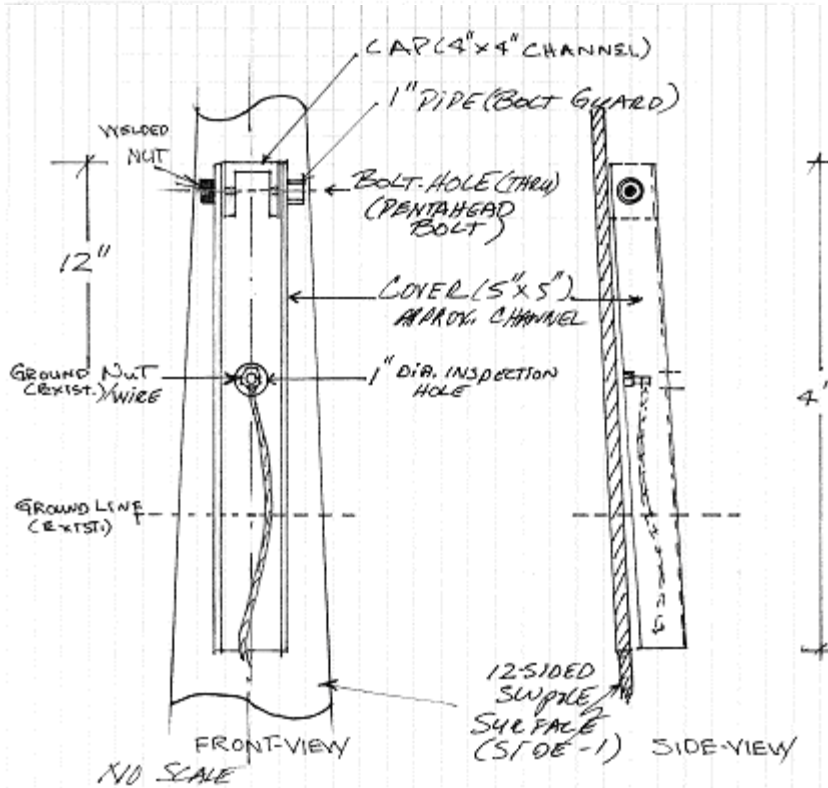 CAP (4"x4" CHANNEL)
1" PIPE (BOLT GUARD)
WELDED
NUT
BOLT-HOLE (THRU)
(PENTAHEAD
BOLT)
12"
COVER (5"x5")
APPROX. CHANNEL
GROUND NUT
(EXIST.)/WIRE
1" DIA. INSPECTION
HOLE
4'
GROUND LINE
(EXIST.)
12-SIDED
SURFACE
(SIDE-1)
FRONT-VIEW
SIDE-VIEW
NO SCALE